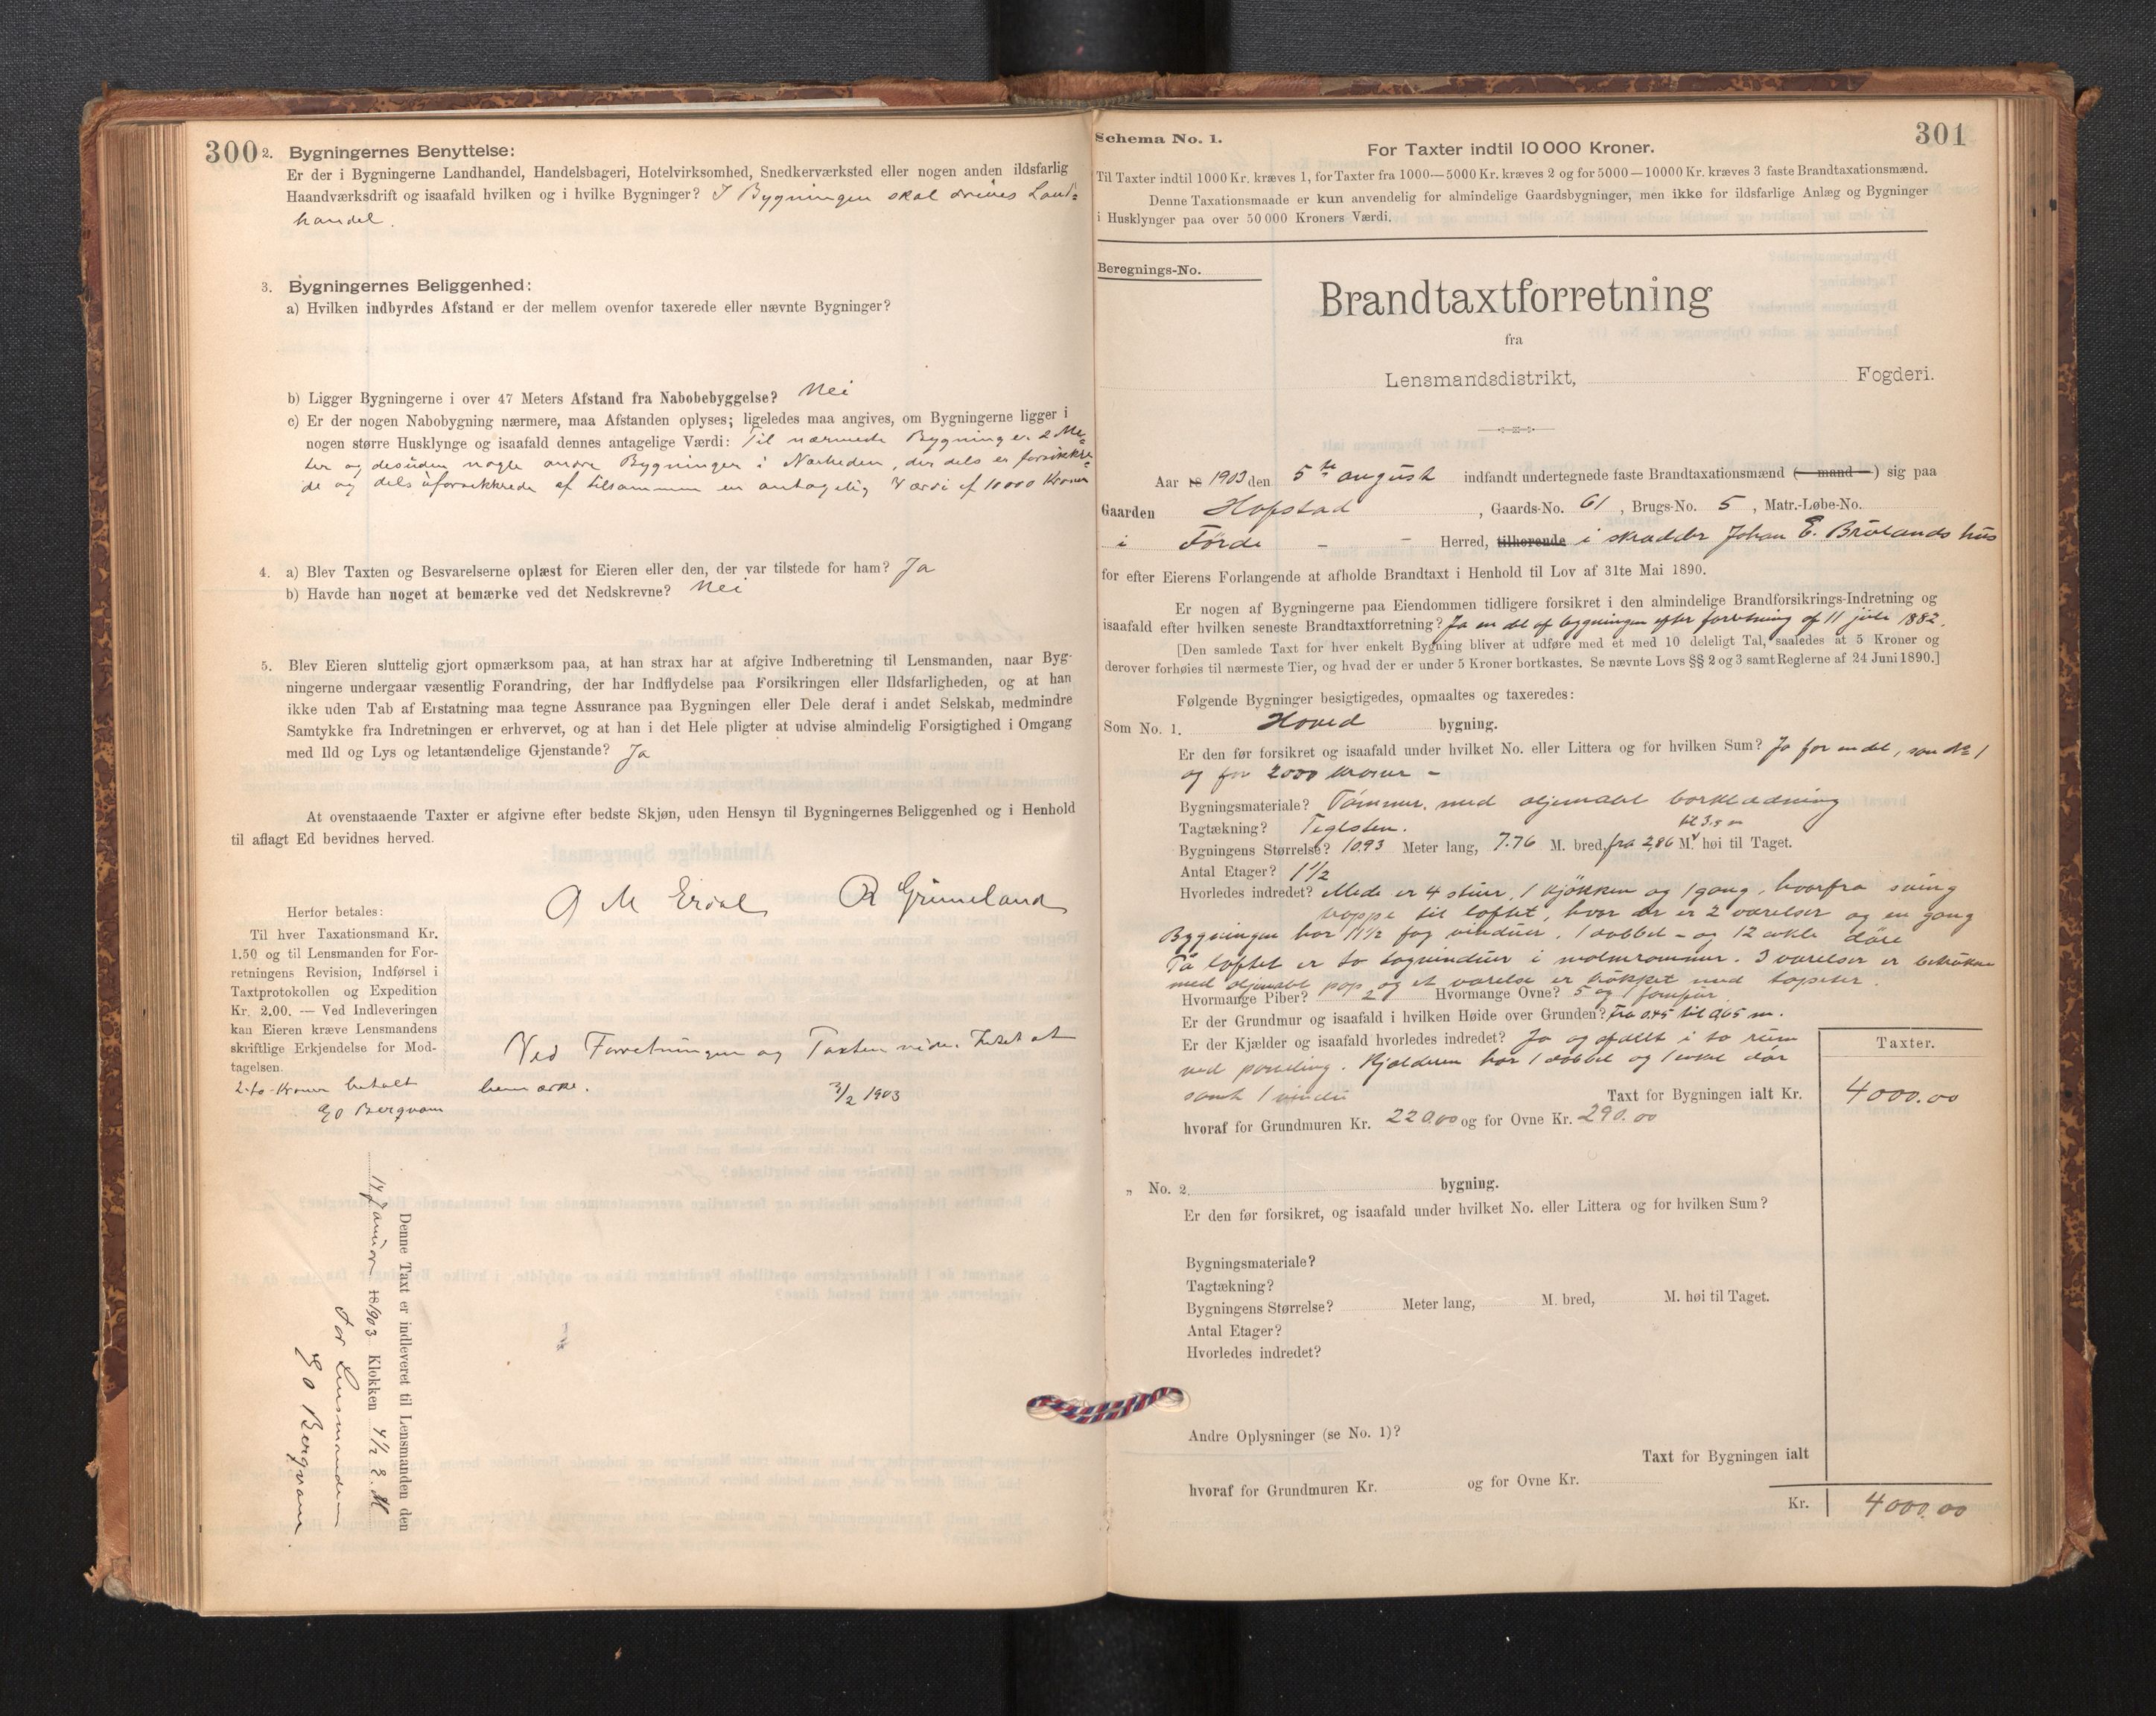 300
2. Bygningernes Benyttelse:
Er der i Bygningerne Landhandel, Handelsbageri, Hotelvirksomhed, Snedkerværksted eller nogen anden ildsfarlig
Haandværksdrift og isaafald hvilken og i hvilke Bygninger? I Bygningen skal drives Land-
handel.
3. Bygningernes Beliggenhed:
a) Hvilken indbyrdes Afstand er der mellem ovenfor taxerede eller nævnte Bygninger?
b) Ligger Bygningerne i over 47 Meters Afstand fra Nabobebyggelse? Nei
c) Er der nogen Nabobygning nærmere, maa Afstanden oplyses; ligeledes maa angives, om Bygningerne ligger i
nogen større Husklynge og isaafald dennes antagelige Værdi: Til nærmeste Bygning er 2 Me-
ter og desuden nogle andre Bygninger i Nærheden, der dels er forsikkre-
de og dels uforsikkrede af tilsammen en antagelig Værdi af 10000 Kroner
4. a) Blev Taxten og Besvarelserne oplæst for Eieren eller den, der var tilstede for ham? Ja
b) Havde han noget at bemærke ved det Nedskrevne? Nei
5. Blev Eieren sluttelig gjort opmærksom paa, at han strax har at afgive Indberetning til Lensmanden, naar Byg-
ningerne undergaar væsentlig Forandring, der har Indflydelse paa Forsikringen eller Ildsfarligheden, og at han
ikke uden Tab af Erstatning maa tegne Assurance paa Bygningen eller Dele deraf i andet Selskab, medmindre
Samtykke fra Indretningen er erhvervet, og at han i det Hele pligter at udvise almindelig Forsigtighed i Omgang
med Ild og Lys og letantændelige Gjenstande? Ja
At ovenstaaende Taxter er afgivne efter bedste Skjøn, uden Hensyn til Bygningernes Beliggenhed og i Henhold
til aflagt Ed bevidnes herved.
O M Erdal R Grimeland
Herfor betales:
Til hver Taxationsmand Kr.
1.50 og til Lensmanden for For-
retningens Revision, Indførsel i
Taxtprotokollen og Expedition
Kr. 2.00. — Ved Indleveringen
kan Eieren kræve Lensmandens
skriftlige Erkjendelse for Mod-
tagelsen.
2-to-Kroner betalt
Bergvam
Ved Forretningen og Taxten vides Intet at
bemærke. 3/2 1903
Denne Taxt er indleveret til Lensmanden den
14 Januar 18/903 Klokken 4 1/2 E. M
For Lensmanden
Bergvam
301
Schema No. 1.
For Taxter indtil 10 000 Kroner.
Til Taxter indtil 1000 Kr. kræves 1, for Taxter fra 1000—5000 Kr. kræves 2 og for 5000—10000 Kr. kræves 3 faste Brandtaxationsmænd.
Denne Taxationsmaade er kun anvendelig for almindelige Gaardsbygninger, men ikke for ildsfarlige Anlæg og Bygninger
i Husklynger paa over 50 000 Kroners Værdi.
Beregnings-No.
Brandtaxtforretning
fra
Lensmandsdistrikt, Fogderi.
Aar 18 1903 den 5te august indfandt undertegnede faste Brandtaxationsmænd (— mand —) sig paa
Gaarden Hofstad, Gaards-No. 61, Brugs-No. 5, Matr.-Løbe-No.
i Förde - - Herred, tilhørende i skrædder Johan E. Brulands hus
for efter Eierens Forlangende at afholde Brandtaxt i Henhold til Lov af 31te Mai 1890.
Er nogen af Bygningerne paa Eiendommen tidligere forsikret i den almindelige Brandforsikrings-Indretning og
isaafald efter hvilken seneste Brandtaxtforretning? Ja en del af bygningen efter forretning af 11 juli 1882.
[Den samlede Taxt for hver enkelt Bygning bliver at udføre med et med 10 deleligt Tal, saaledes at 5 Kroner og
derover forhøies til nærmeste Tier, og hvad der er under 5 Kroner bortkastes. Se nævnte Lovs §§ 2 og 3 samt Reglerne af 24 Juni 1890.]
Følgende Bygninger besigtigedes, opmaaltes og taxeredes:
Som No. 1. Hoved bygning.
Er den før forsikret og isaafald under hvilket No. eller Littera og for hvilken Sum? Ja for en del, som No 1
og for 2000 Kroner -
Bygningsmateriale? Tömmer, med oljemalt bordklædning
Tagtækning? Teglsten.
til 3,5 m
Bygningens Størrelse? 10.93 Meter lang, 7.76 M. bred, fra 2,86 M. høi til Taget.
Antal Etager? 1 1/2
Hvorledes indredet? Nede er 4 stuer, 1 kjökken og 1 gang, hvorfra sving
trappe til loftet, hvor der er 2 værelser og en gang
Bygningen har 11 1/2 fag vinduer, 1 dobbel- og 12 enkle döre
På loftet er to tagvinduer i . 3 værelser er betrukne
med oljemalt pap og et værelse er trukket med tapeter.
Hvormange Piber? 2 Hvormange Ovne? 5 og 1 komfur.
Er der Grundmur og isaafald i hvilken Høide over Grunden? Fra 0.45 til 0,65 m.
Er der Kjælder og isaafald hvorledes indredet? Ja og afdelt i to rum
ved paneling. Kjælderen har 1 dobbel og 1 enkel dör
samt 1 vindu
Taxt for Bygningen ialt Kr.
Taxter.
4000.00
hvoraf for Grundmuren Kr. 220.00 og for Ovne Kr. 290.00
„ No. 2. bygning.
Er den før forsikret, og isaafald under hvilket No. eller Littera og for hvilken Sum?
Bygningsmateriale?
Tagtækning?
Bygningens Størrelse? Meter lang, M. bred, M. høi til Taget.
Antal Etager?
Hvorledes indredet?
Andre Oplysninger (se No. 1)?
Taxt for Bygningen ialt
hvoraf for Grundmuren Kr. og for Ovne Kr.
Kr. 4000.00